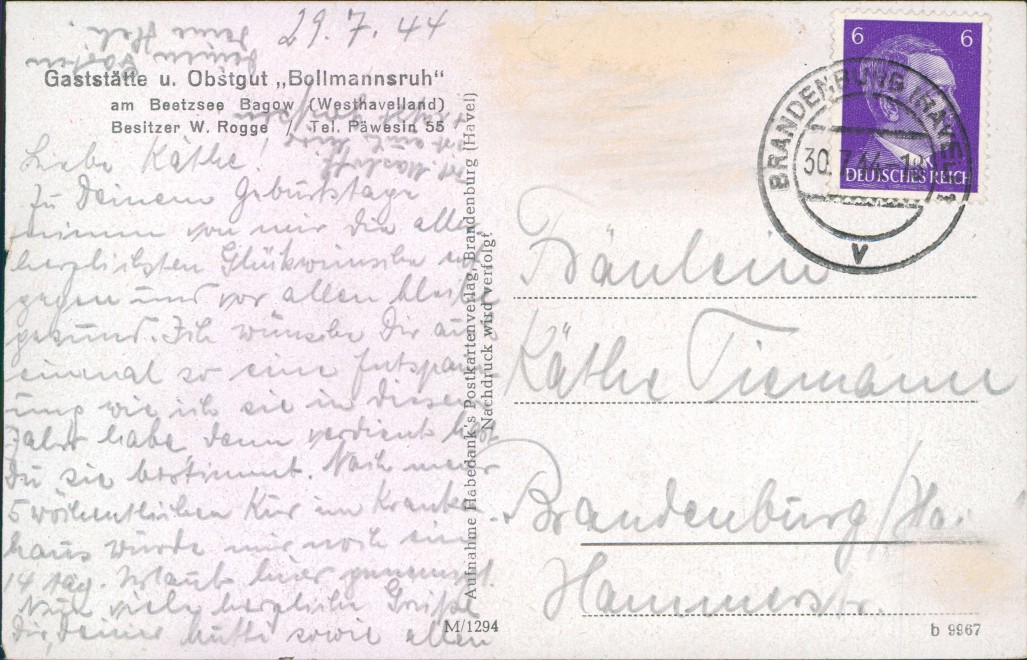 29. 7. 44
Gaststätte u. Obstgut „Bollmannsruh"
am Beetzsee Bagow (Westhavelland)
Besitzer W. Rogge / Tel. Päwesin 55
Liebe Käthe!
Zu Deinem Geburtstage
nimm von mir die aller
herzlichsten Glückwünsche ent
gegen und vor allen bleibe
gesund. Ich wünsche Dir auch
einmal so eine Entspann-
ung wie ich sie in diesem
Jahr habe denn verdient hast
Du sie bestimmt. Nach meiner
5 wöchentlichen Kur im Kranken
haus wurde mir noch ein
14 täg. Urlaub hier genehmigt.
Nun viele herzliche Grüße
Dir, Deiner Mutti sowie allen
Aufnahme Habedank's Postkartenverlag, Brandenburg (Havel)
Nachdruck wird verfolgt
M/1294
6 6
DEUTSCHES REICH
BRANDENBURG (HAVEL) 1
30.7.44-18
v
Fräulein
Käthe Tiemann
Brandenburg/Ha.
Hammerstr.
b 9967